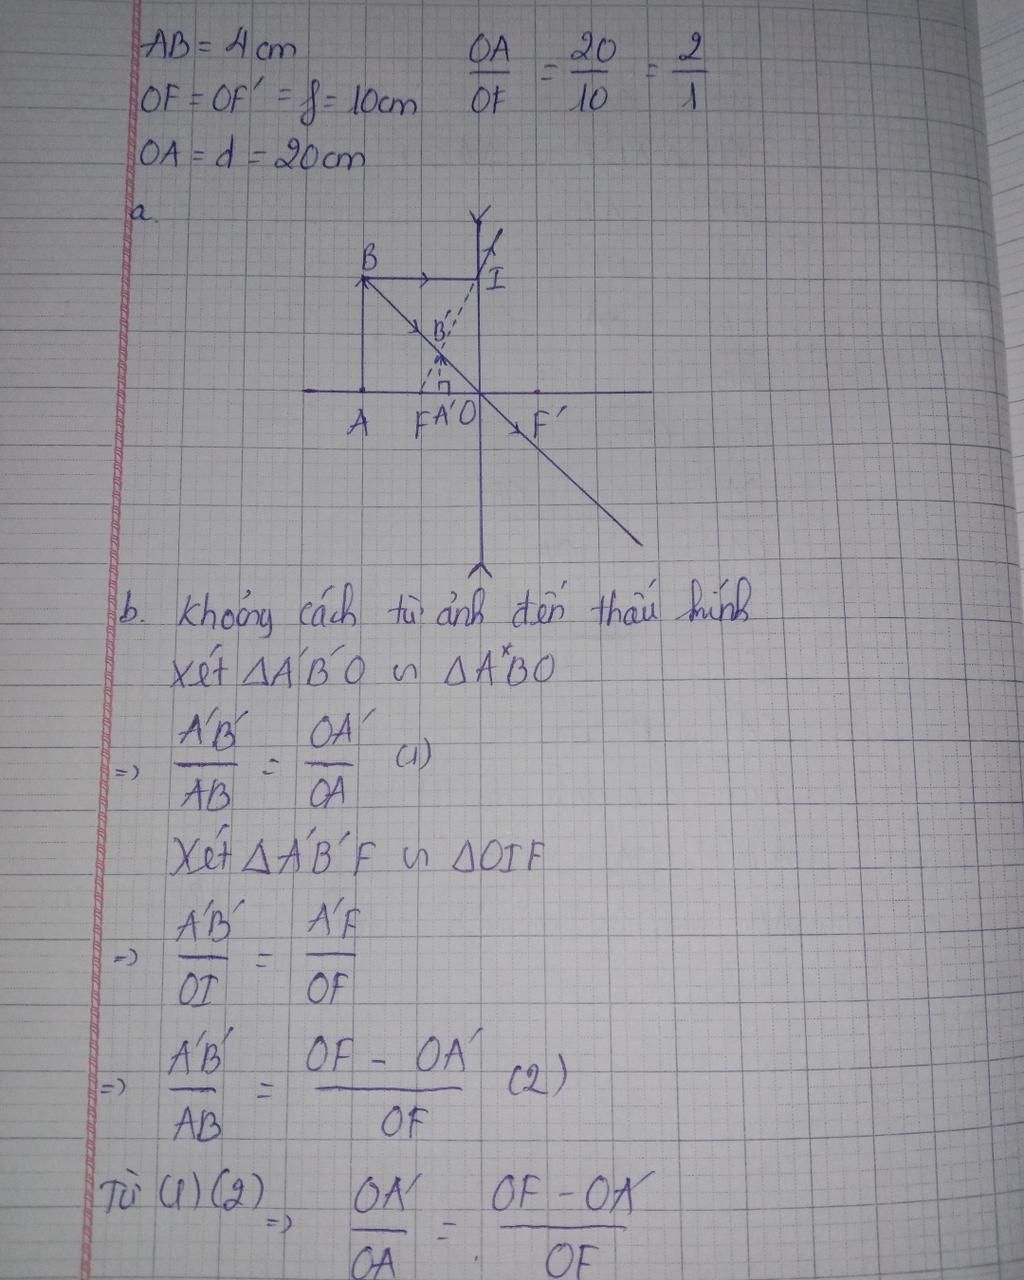 AB = 4cm
OF = OF' = f = 10cm
OA = d = 20cm
OA/OF = 20/10 = 2/1
a.
B
I
B'
A F A' O F'
b. Khoảng cách từ ảnh đến thấu kính
Xét ΔA'B'O ∽ ΔABO
=> A'B'/AB = OA'/OA (1)
Xét ΔA'B'F ∽ ΔOIF
=> A'B'/OI = A'F/OF
=> A'B'/AB = OF - OA'/OF (2)
Từ (1)(2) => OA'/OA = OF - OA'/OF